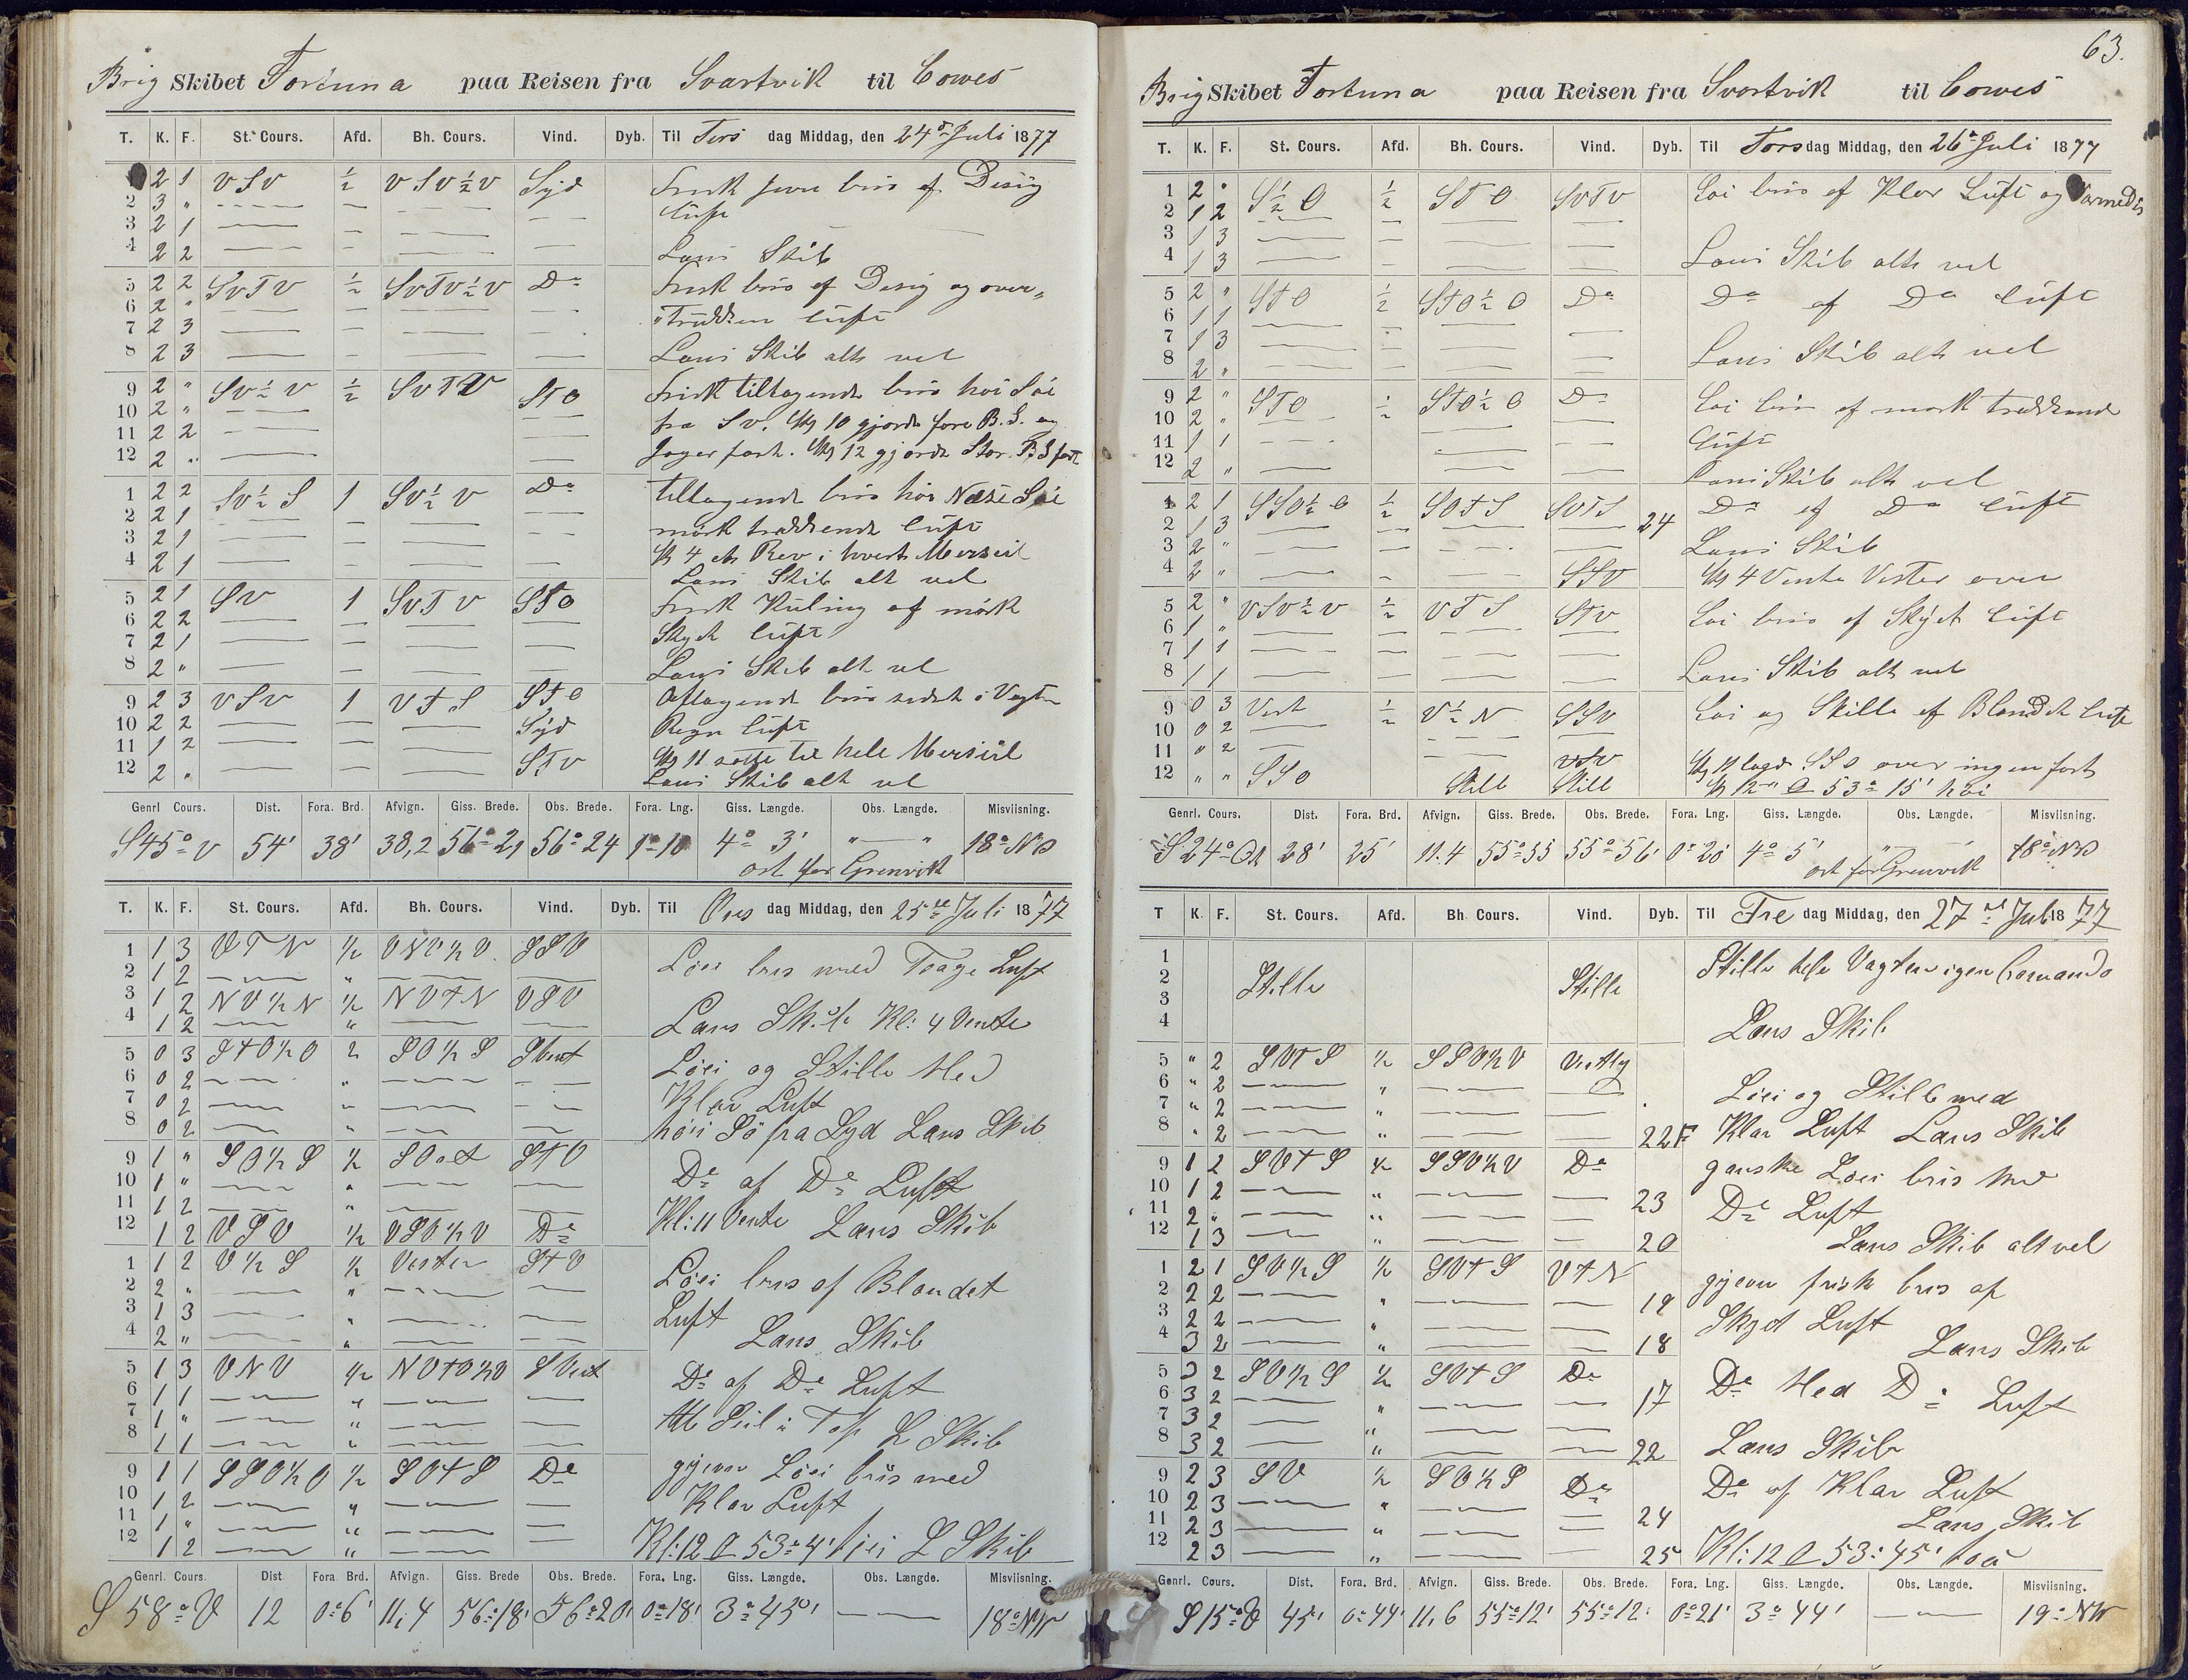 Brig Skibet Fortuna paa Reisen fra Svartvik til Cowes
T. K. F. St. Cours. Afd. Bh. Cours. Vind. Dyb. Til Tirs dag Middag, den 24de Juli 1877
2 1 VSV ½ VSV½V Syd Frisk jevn bris af Disig
2 3 " Luft
3 2 1
4 2 2 Lens Skib
5 2 2 SvTV ½ SvTV½V Do Frisk bris af Disig og over-
6 2 " trukken luft
7 2 3
8 2 3 Lens Skib alt vel
9 2 " Sv½V ½ SvTV STO Frisk tiltagende bris høi Søi
10 2 " fra SV. Kl 10 gjorde fore B.S. og
11 2 2 Jager fast. Kl 12 gjorde Stor B.S fast
12 2 "
1 2 2 Sv½S 1 Sv½V Do tiltagende bris høi Næse Søi
2 2 1 mørk trækkende luft
3 2 1 Kl 4 et Rev i hvert Merseil
4 2 1 Lens Skib alt vel
5 2 1 SV 1 SvTV STO Frisk Kuling af mørk
6 2 2 Skyet luft
7 2 1
8 2 " Lens Skib alt vel
9 2 3 VSV 1 VTS STO Aftagende bris sidst i Vagten
10 2 2 Syd Regn luft
11 1 2 Kl 11 satte til hele Merseil
12 2 " STV Lens Skib alt vel
Genrl Cours. Dist. Fora. Brd. Afvign. Giss. Brede. Obs. Brede. Fora. Lng. Giss. Længde. Obs. Længde. Misviisning.
S45°V 54' 38' 38,2 56°21 56°24 1°10 4° 3' " — " 18° NV
ost for Grenvik
T. K. F. St. Cours. Afd. Bh. Cours. Vind. Dyb. Til Ons dag Middag, den 25de Juli 1877
1 1 3 VTN ½ VNV½V. SSV Løei bris med Taage Luft
2 1 2 "
3 1 2 NV½N ½ NVTN VSV
4 1 2 " Læns Skib Kl: 4 Vente
5 0 3 STO½O ½ SO½S SVest Løei og Stille Med
6 0 2 " Klar Luft
7 0 2 "
8 0 2 " høi Sö fra Syd Læns Skib
9 1 " SO½S ½ SOost STO De af De Luft
10 1 " "
11 1 2 " Kl: 11 Vente Læns Skib
12 1 2 VSV ½ VSV½V De
1 1 2 V½S ½ Vesten STV Løei bris af Blandet
2 2 " " Luft
3 1 3 "
4 2 " " Læns Skib
5 1 3 VNV ½ NVTV½V SVest De af De Luft
6 1 1 "
7 1 " " Alle Seil i Top L Skib
8 1 1 "
9 1 1 SSO½O ½ SOTS De gjevn Löei bris med
10 1 2 " Klar Luft
11 1 " "
12 1 2 " Kl: 12 53°4' høi L Skib
Genrl. Cours. Dist. Fora. Brd. Afvign. Giss. Brede Obs. Brede. Fora. Lng. Giss. Længde. Obs. Længde. Misviisning.
S58°V 12 0°6' 11,4 56°18' 56°20' 0°18' 3°45' — 18° NW
63.
Brig Skibet Fortuna paa Reisen fra Svartvik til Cowes
T. K. F. St. Cours. Afd. Bh. Cours. Vind. Dyb. Til Tors dag Middag, den 26de Juli 1877
1 2 " S½O ½ STO SVTV Løi bris af Klar Luft og Varmedis
2 1 2
3 1 3
4 1 3 Lens Skib alt vel
5 2 " STO ½ STO½O Do Do af Do luft
6 1 1
7 1 3
8 2 " Lens Skib alt vel
9 2 " STO ½ STO½O Do Løi bris af mørk trækkende
10 2 " luft
11 1 1
12 2 " Lens Skib alt vel
1 2 1 SSO½O ½ SOTS SVTS Do af Do luft
2 1 3 24
3 2 " Lens Skib
4 2 " SSV Kl 4 Vente Vester over
5 2 " VSV½V ½ VTS STV Løi bris af Skyet luft
6 1 "
7 1 1
8 1 1 Lens Skib alt vel
9 0 3 Vest ½ V½N SSV Løi og Stille af Blandet luft
10 0 2
11 " 2 VSV Kl 11 lagde SSO over ingen fart
12 " " SSO Still Still Kl 12 53° 15' høi
Genrl. Cours. Dist. Fora. Brd. Afvign. Giss. Brede. Obs. Brede. Fora. Lng. Giss. Længde. Obs. Længde. Misviisning.
S24°Ost 28' 25' 11.4 55°55 55°56' 0°20' 4° 5' " " 18° NV
ost for Grenvik
T K. F. St. Cours. Afd. Bh. Cours. Vind. Dyb. Til Fre dag Middag, den 27de Juli 1877
1 Stille hele Vagten igen Comando
2 Stille Stille
3
4 Læns Skib
5 " 2 SVTS ½ SSV½V Vestlig
6 " 2 " Løei og Stille med
7 " 2 "
8 " 2 " 22F Klar Luft Læns Skib
9 1 2 SVTS ½ SSV½V De ganske Løei bris med
10 1 2 " 23 De Luft
11 2 " "
12 1 3 " 20 Læns Skib alt vel
1 2 1 SV½S ½ SVTS VTN gjevn frisk bris af
2 2 2 " 19
3 2 2 " Skyet Luft
4 3 2 " 18 Læns Skib
5 3 2 SV½S ½ SVTS De De Med De Luft
6 3 2 " 17
7 3 2 "
8 3 2 " 22 Læns Skib
9 2 3 SV ½ SV½S De De af Klar Luft
10 2 3 " 24
11 2 3 " Læns Skib
12 2 3 " 25 Kl: 12 53° 45'
Genrl. Cours. Dist. Fora. Brd. Afvign. Giss. Brede. Obs. Brede. Fora. Lng. Giss. Længde. Obs. Længde. Misviisning.
S15°V 45' 0°44' 11,6 55°12' 55°12' 0°21' 3° 44' — 19° NW